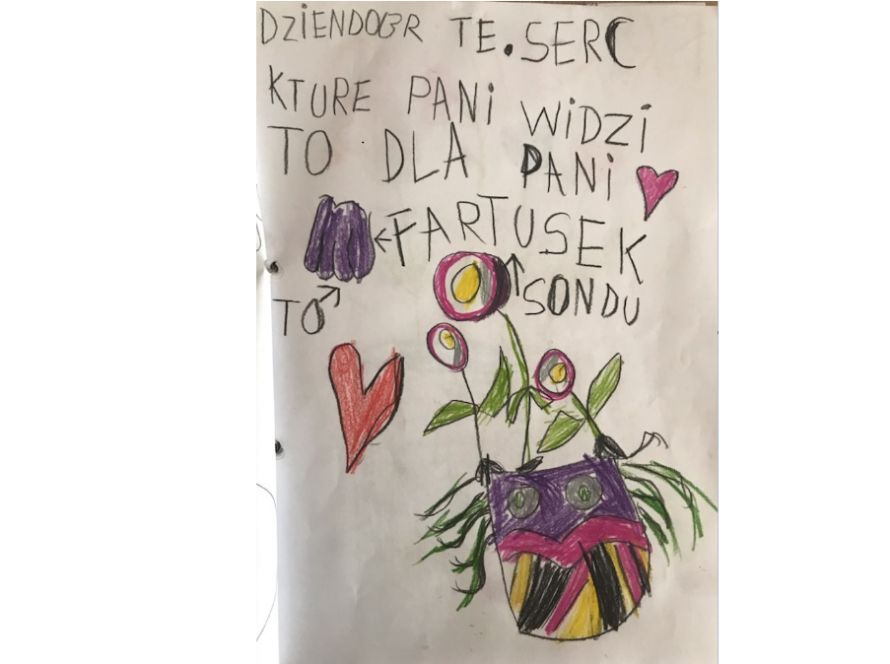 DZIENDOBR TE.SERC
KTURE PANi WiDZi
TO DLA PANi
←FARTUSEK
TO↗ ↑SONDU